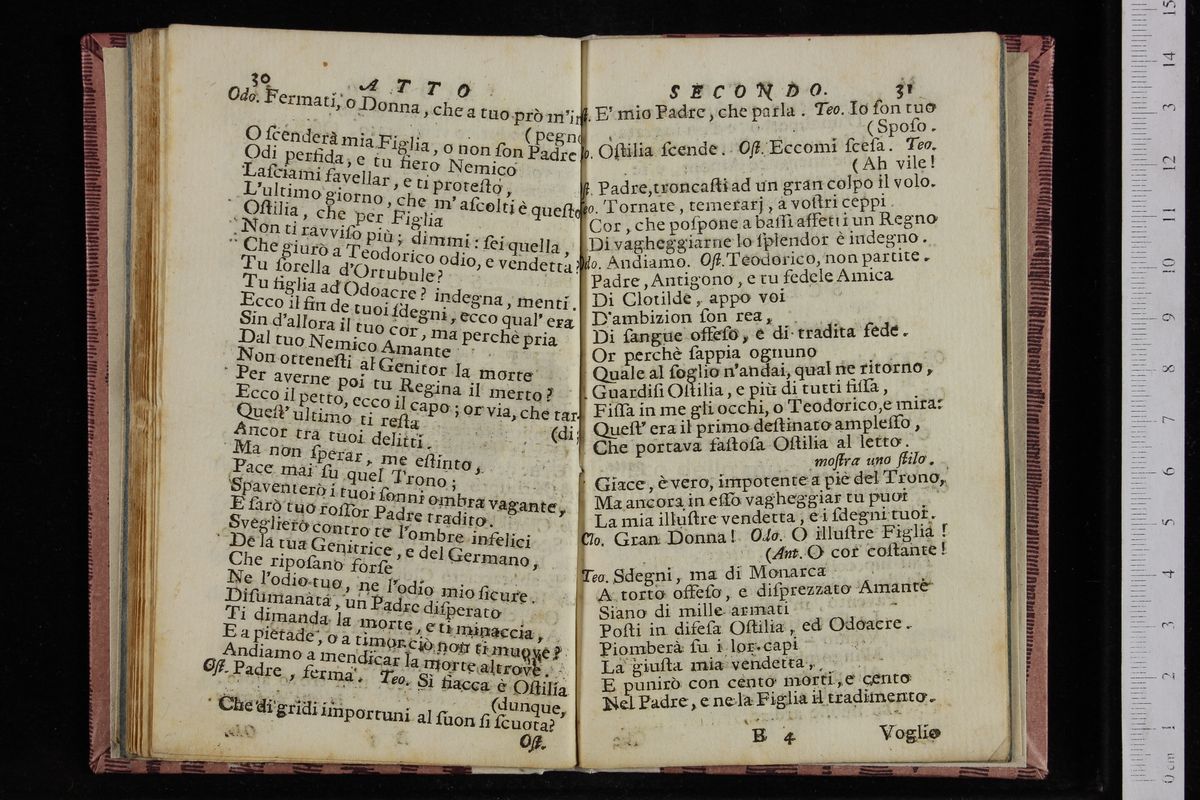 30 ATTO
Odo. Fermati, o Donna, che a tuo prò m'
(pegno
O ſcenderà mia Figlia, o non ſon Padre
Odi perfida, e tu fiero Nemico
Laſciami favellar, e ti proteſto,
L'ultimo giorno, che m'aſcolti è queſto
Oſtilia, che per Figlia
Non ti ravviſo più; dimmi: ſei quella,
Che giurò a Teodorico odio, e vendetta?
Tu ſorella d'Ortubule?
Tu figlia ad Odoacre? indegna, menti.
Ecco il fin de tuoi ſdegni, ecco qual' era
Sin d'allora il tuo cor, ma perchè pria
Dal tuo Nemico Amante
Non otteneſti al Genitor la morte
Per averne poi tu Regina il merto?
Ecco il petto, ecco il capo; or via, che tar-
Queſt' ultimo ti reſta (di;
Ancor tra tuoi delitti.
Ma non ſperar, me eſtinto,
Pace mai ſu quel Trono;
Spaventerò i tuoi ſonni ombra vagante,
E ſarò tuo roſſor Padre tradito.
Sveglierò contro te l'ombre infelici
De la tua Genitrice, e del Germano,
Che ripoſano forſe
Ne l'odio tuo, ne l'odio mio ſicure.
Diſumanata, un Padre diſperato
Ti dimanda la morte, e ti minaccia,
E a pietade, o a timor ciò non ti muove?
Andiamo a mendicar la morte altrove.
Oſt. Padre, ferma. Teo. Si fiacca è Oſtilia
(dunque,
Che di gridi importuni al ſuon ſi ſcuota?
Oſt.
SECONDO. 31
E' mio Padre, che parla. Teo. Io ſon tuo
(Spoſo.
Oſtilia ſcende. Oſt. Eccomi ſceſa. Teo.
(Ah vile!
Padre, troncaſti ad un gran colpo il volo.
Tornate, temerarj, a voſtri ceppi.
Cor, che poſpone a baſſi affetti un Regno
Di vagheggiarne lo ſplendor è indegno.
Andiamo. Oſt. Teodorico, non partite.
Padre, Antigono, e tu fedele Amica
Di Clotilde, appo voi
D'ambizion ſon rea,
Di ſangue offeſo, e di tradita fede.
Or perchè ſappia ognuno
Quale al ſoglio n'andai, qual ne ritorno,
Guardiſi Oſtilia, e più di tutti fiſſa,
Fiſſa in me gli occhi, o Teodorico, e mira:
Queſt' era il primo deſtinato ampleſſo,
Che portava faſtoſa Oſtilia al letto.
moſtra uno ſtilo.
Giace, è vero, impotente a piè del Trono,
Ma ancora in eſſo vagheggiar tu puoi
La mia illuſtre vendetta, e i ſdegni tuoi.
Clo. Gran Donna! Odo. O illuſtre Figlia!
(Ant. O cor coſtante!
Teo. Sdegni, ma di Monarca
A torto offeſo, e diſprezzato Amante
Siano di mille armati
Poſti in difeſa Oſtilia, ed Odoacre.
Piomberà ſu i lor capi
La giuſta mia vendetta,
E punirò con cento morti, e cento
Nel Padre, e ne la Figlia il tradimento.
B 4 Voglio